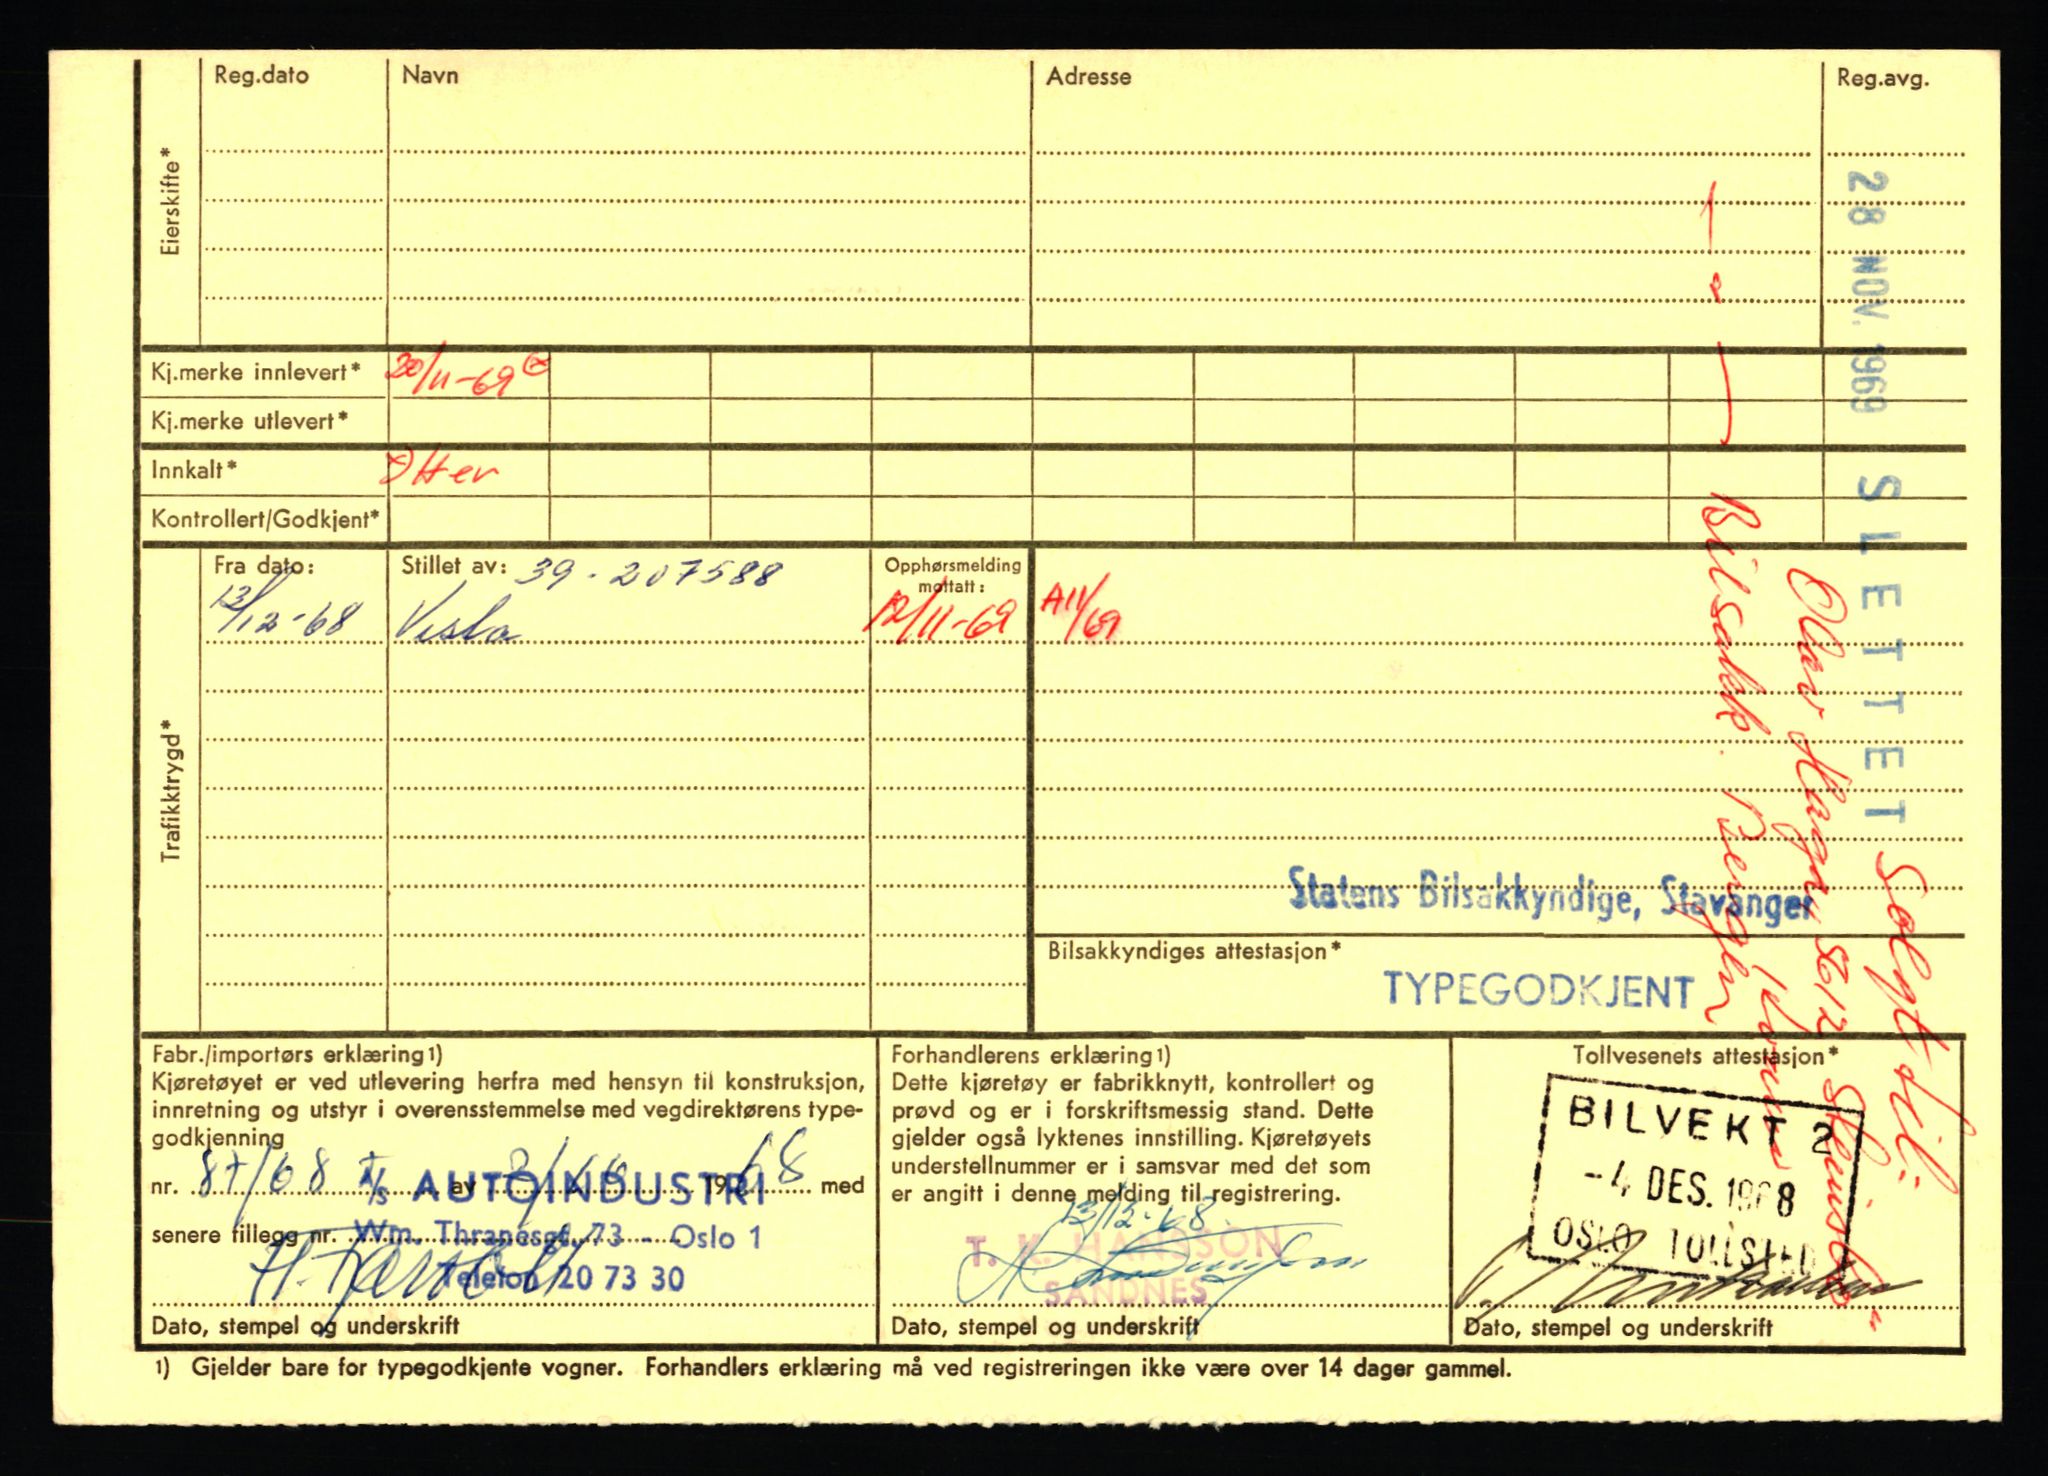 Reg.dato Navn Adresse Reg.avg.
Eierskifte*
28 NOV. 1969 SLETTET
Kj.merke innlevert* 20/11-69
Kj.merke utlevert*
Innkalt* Etter
Kontrollert/Godkjent*
Trafikktrygd*
Fra dato: Stillet av: 39-207588 Opphørsmelding
mottatt:
13/12-68 Vesta 12/11-69 A11/69
Solgt til:
Olav Haugn
Bilsakk. Bergen
Statens Bilsakkyndige, Stavanger
Bilsakkyndiges attestasjon*
TYPEGODKJENT
Fabr./importørs erklæring1)
Kjøretøyet er ved utlevering herfra med hensyn til konstruksjon,
innretning og utstyr i overensstemmelse med vegdirektørens type-
godkjenning
nr. 87/68 av 1968 med
A/S AUTOINDUSTRI
senere tillegg nr.
Wm. Thranesgt. 73 - Oslo 1
Telefon 20 73 30
Dato, stempel og underskrift
Forhandlerens erklæring1)
Dette kjøretøy er fabrikknytt, kontrollert og
prøvd og er i forskriftsmessig stand. Dette
gjelder også lyktenes innstilling. Kjøretøyets
understellnummer er i samsvar med det som
er angitt i denne melding til registrering.
13/12-68
T. K. HANSSON
SANDNES
Dato, stempel og underskrift
Tollvesenets attestasjon*
BILVEKT 2
-4 DES. 1968
OSLO TOLLSTED
Dato, stempel og underskrift
1) Gjelder bare for typegodkjente vogner. Forhandlers erklæring må ved registreringen ikke være over 14 dager gammel.